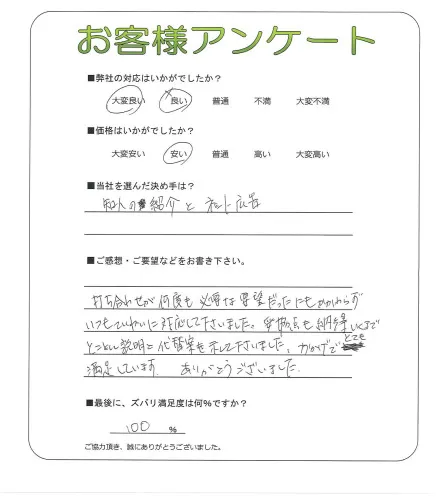 お客様アンケート
■弊社の対応はいかがでしたか？
大変良い 良い 普通 不満 大変不満
■価格はいかがでしたか？
大変安い 安い 普通 高い 大変高い
■当社を選んだ決め手は？
知人の紹介と ネット広告
■ご感想・ご要望などをお書き下さい。
打ち合わせが何度も必要な要望だったにもかかわらず
いつもていねいに対応して下さいました。 点も納得いくまで
とことん説明と代替案を示して下さいました。おかげで とても
満足しています。 ありがとうございました。
■最後に、ズバリ満足度は何%ですか？
100 %
ご協力頂き、誠にありがとうございました。